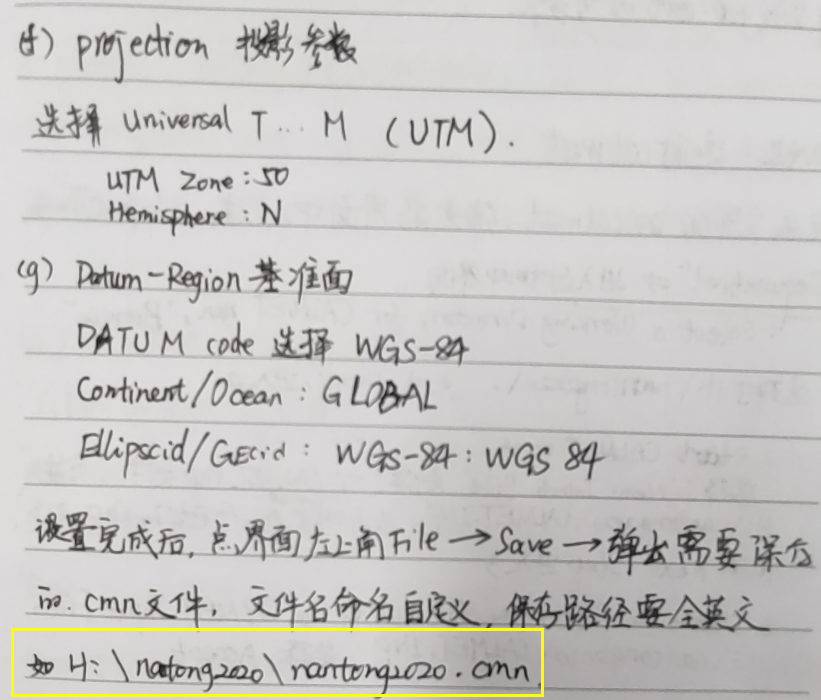 (f) projection 投影参数
选择 Universal T... M (UTM).
UTM Zone: 50
Hemisphere: N
(g) Datum-Region 基准面
DATUM code 选择 WGS-84
Continent/Ocean: GLOBAL
Ellipscid/GEcid: WGS-84: WGS 84
设置完成后, 点界面左上角File → Save → 弹出需要保存
的.cmn文件, 文件名命名自定义, 保存路径要全英文
如 H:\nantong2020\nantong2020.cmn